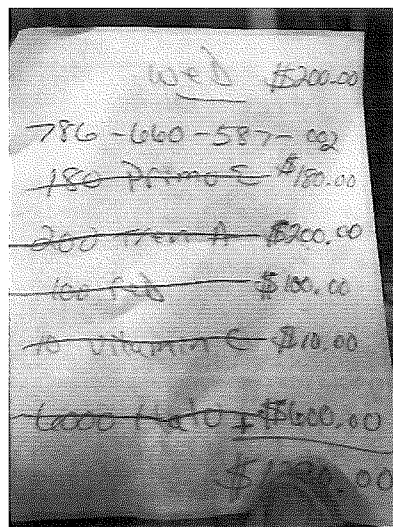 web $200.00
786-660-587-002
180 Primo E $180.00
200 Tren A $200.00
100 $100.00
10 vitamin C $10.00
6000 Halo + $600.00
$1290.00